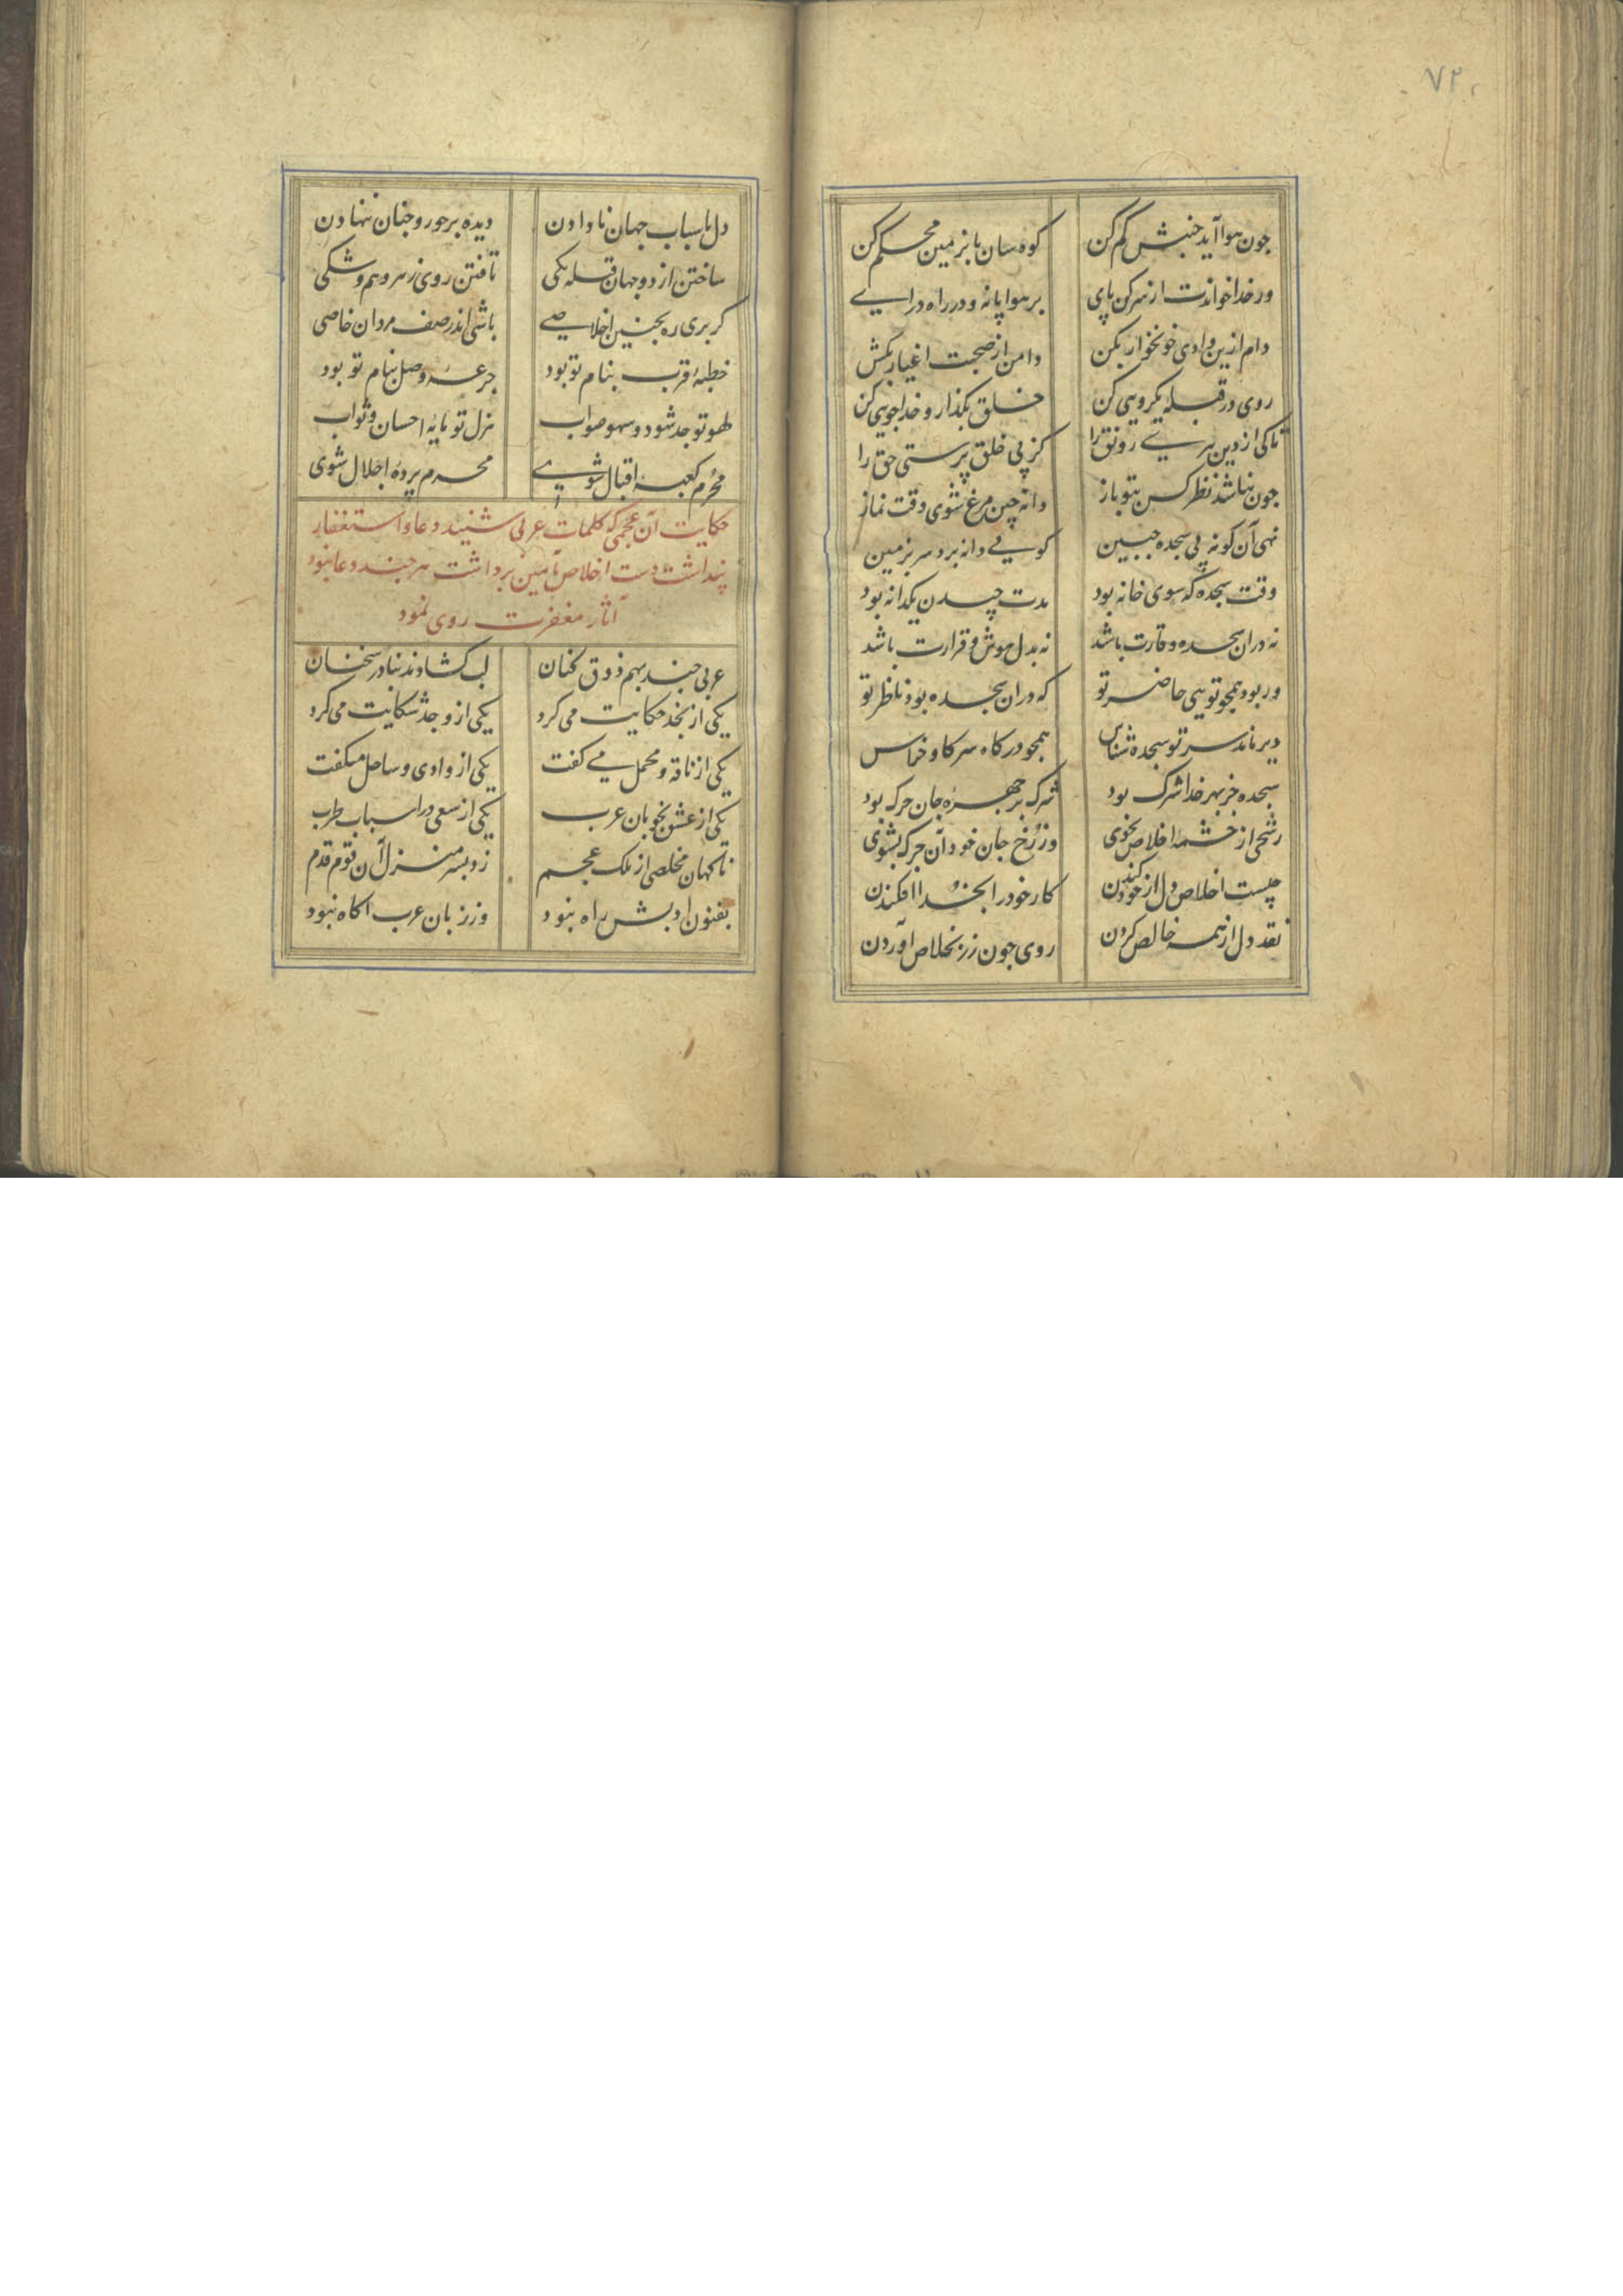 ۷۲
چون هوا آید جنبش کم کن کوه سان پا بزمین محکم کن
ور خدا خواندت از سر کن پای بر هوا پا نه و در راه درای
دام ازین وادی خونخوار بکن دامن از صحبت اغیار بکش
روی در قبله یکرویی کن خلق بگذار و خداجویی کن
تا کی از دین بری رونق را کز پی خلق پرستی حق را
چون نباشد نظر کس بتو باز دانه چین مرغ شوی وقت نماز
نهی آن گونه پی سجده جبین کو پی دانه برد سر بزمین
وقت سجده که سوی خانه بود مدت چیدن یکدانه بود
نه در آن سجده وقارت باشد نه بدل هوش و قرارت باشد
ور بود همچو تویی حاضر تو که در آن سجده بود ناظر تو
دیر ماند سر تو سجده شناس همچو در کاه سر گاو خراس
سجده جز بهر خدا شرک بود شرک بر چهره جان چرک بود
رشحی از چشمه اخلاص بجوی وز رخ جان خود آن چرک بشوی
چیست اخلاص دل از خود کندن کار خود را بخدا افکندن
نقد دل از همه خالص کردن روی چون زر بخلاص آوردن
دل باسباب جهان نادادن دیده بر حور و جنان ننهادن
ساختن از دو جهان قبله یکی تافتن روی ز هر وهم و شکی
گر بری ره بچنین اخلاصی باشی اندر صف مردان خاصی
خطبه قرب بنام تو بود جرعه وصل بجام تو بود
لهو تو جد شود و سهو صواب هزل تو مایه احسان و ثواب
محرم کعبه اقبال شوی محرم پرده اجلال شوی
حکایت آن عجمی که کلمات عربی شنید دعا و استغفار
پنداشت دست اخلاص بآمین برداشت هر چند دعا نبود
آثار مغفرت روی نمود
عربی چند بهم ذوق کنان لب گشادند بنادر سخنان
یکی از نجد حکایت می کرد یکی از وجد شکایت می کرد
یکی از ناقه و محمل می گفت یکی از وادی و ساحل میگفت
یکی از عشق بخوبان عرب یکی از سعی در اسباب طرب
ناگهان مخلصی از ملک عجم زد بسر منزل آن قوم قدم
بفنون ادبش راه نبود وز زبان عرب آگاه نبود